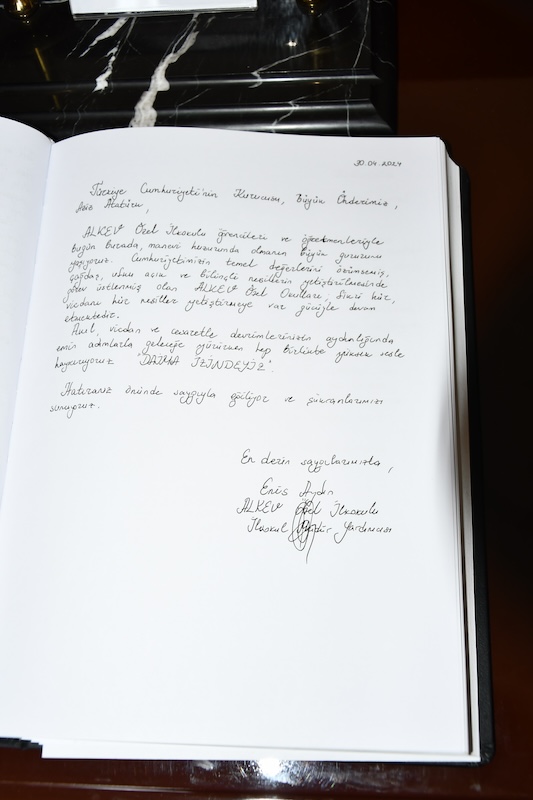 30.04.2024
Türkiye Cumhuriyeti'nin Kurucusu, Büyük Önderimiz,
Aziz Atatürk,
ALKEV Özel İlkokulu öğrencileri ve öğretmenleriyle
bugün burada, manevi huzurunda olmanın büyük gururunu
yaşıyoruz. Cumhuriyetimizin temel değerlerini özümsemiş,
çağdaş, ufku açık ve bilinçli nesillerin yetiştirilmesinde
görev üstlenmiş olan ALKEV Özel Okulları, fikri hür,
vicdanı hür nesiller yetiştirmeye var gücüyle devam
etmektedir.
Akıl, vicdan ve cesaretle devrimlerinizin aydınlığında
emin adımlarla geleceğe yürürken hep birlikte yüksek sesle
haykırıyoruz "DAİMA İZİNDEYİZ".
Hatıranız önünde saygıyla eğiliyor ve şükranlarımızı
sunuyoruz.
En derin saygılarımızla,
Enis Aydın
ALKEV Özel İlkokulu
İlkokul Müdür Yardımcısı